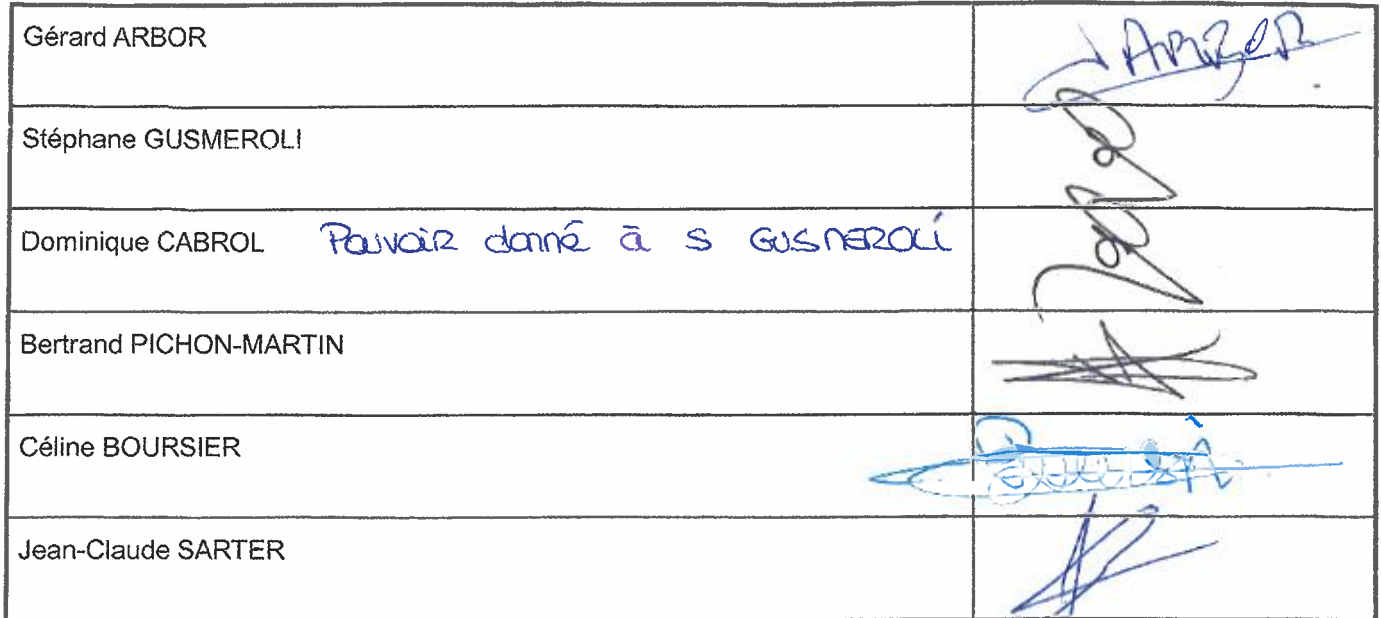 Gérard ARBOR
ARBOR
Stéphane GUSMEROLI
Dominique CABROL Pouvoir donné à S GUSMEROLI
Bertrand PICHON-MARTIN
Céline BOURSIER
Jean-Claude SARTER